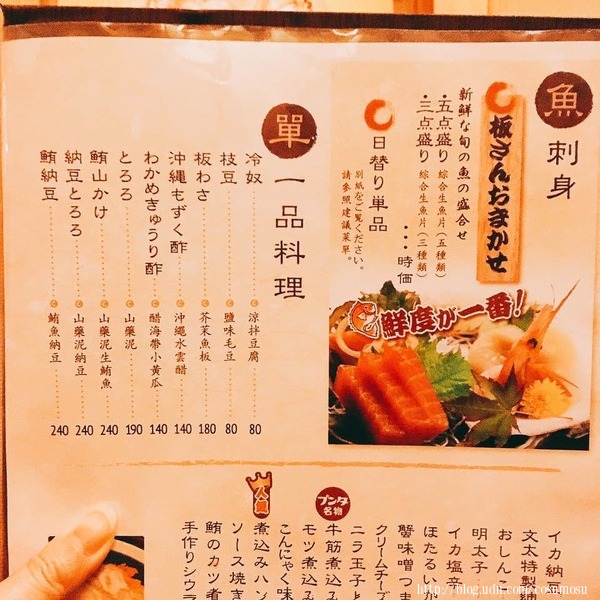 魚
刺身
板さんおまかせ
新鮮な旬の魚の盛合せ
・五点盛り 綜合生魚片(五種類)
・三点盛り 綜合生魚片(三種類)
日替り単品
…時価
別紙をご覧ください。
請參照建議菜單。
鮮度が一番!
單
一品料理
冷奴 涼拌豆腐 80
枝豆 鹽味毛豆 80
板わさ 芥茉魚板 180
沖縄もずく酢 沖繩水雲醋 140
わかめきゅうり酢 醋海帶小黃瓜 140
とろろ 山藥泥 190
鮪山かけ 山藥泥生鮪魚 240
納豆とろろ 山藥泥納豆 240
鮪納豆 鮪魚納豆 240
イカ納
文太特製
おしん
明太子
イカ塩辛
ほたるい
蟹味噌つま
クリームチーズ
ニラ玉子と
ブンタ名物
牛筋煮込み
モツ煮込み
こんにゃく味
人気
煮込みハン
ソース焼き
鮪のカツ煮
手作りシウ
http://blog.udn.com/cosumosu